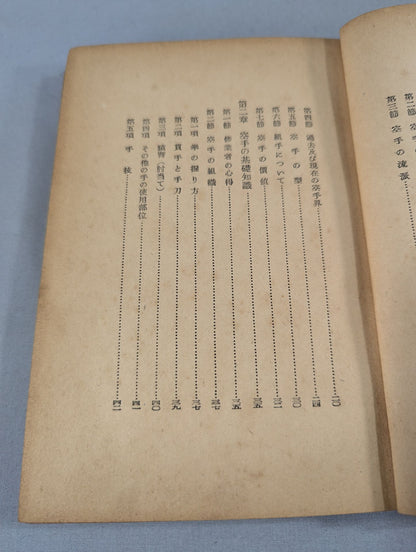 第二節 空手の流派
第三節
第四節 過去及び現在の空手界……二〇
第五節 空手の型……二四
第六節 組手について……三〇
第七節 空手の價値……三一
第二章 空手の基礎知識……三五
第一節 修業者の心得……三五
第二節 空手の組織……三七
第一項 拳の握り方……三七
第二項 貫手と手刀……三九
第三項 猿臂(肘当て)……四〇
第四項 その他の手の使用部位……四一
第五項 手技……四二